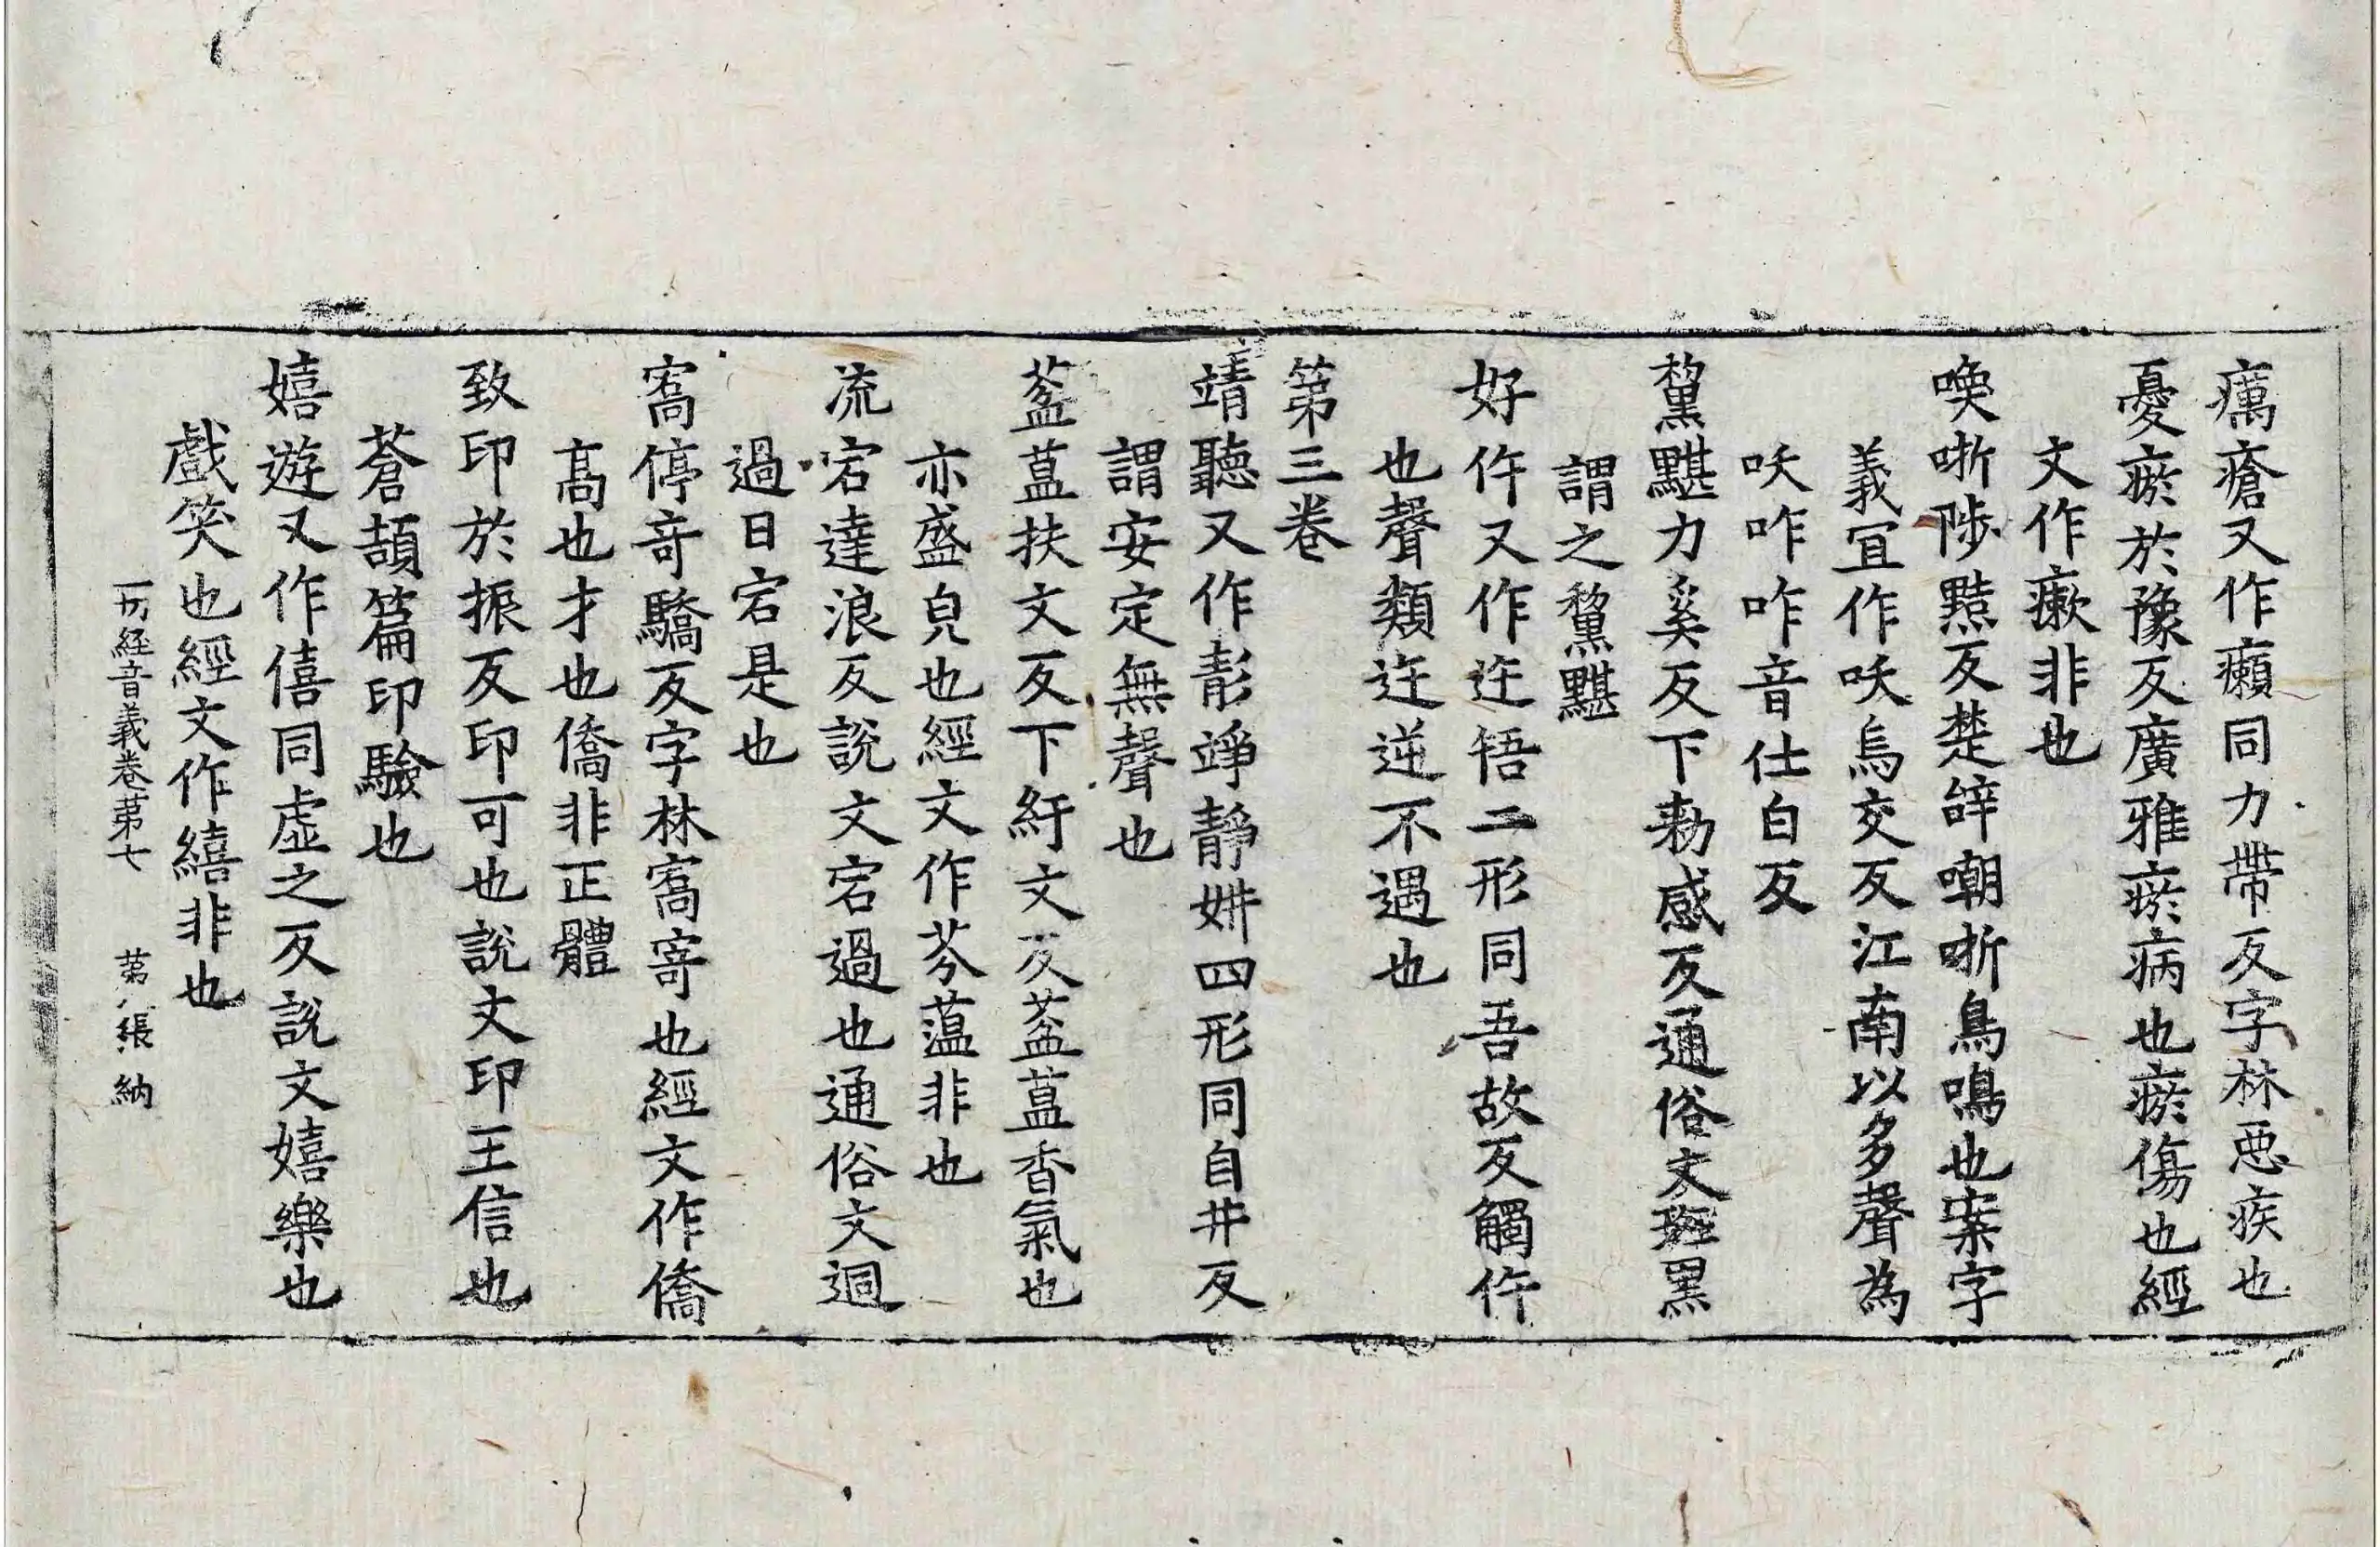 癘瘡又作癩同力帶反字林惡疾也
憂瘀於豫反廣雅瘀病也瘀傷也經
文作瘷非也
喚哳陟黠反楚辝嘲哳鳥鳴也案字
義冝作吺烏交反江南以多聲為
吺咋咋音仕白反
黧黮力奚反下勑感反通俗文斑黑
謂之黧黮
好仵又作迕啎二形同吾故反觸仵
也聲類迕逆不遇也
第三卷
靖聽又作彰竫靜妌四形同自井反
謂安定無聲也
葐蒀扶文反下紆文反葐蒀香氣也
亦盛皃也經文作芬蒕非也
流宕達浪反說文宕過也通俗文迵
過曰宕是也
寯停奇驕反字林寯寄也經文作僑
髙也才也僑非正體
致印於振反印可也說文印王信也
蒼頡篇印驗也
嬉遊又作僖同虛之反說文嬉樂也
戲笑也經文作繥非也
一切經音義卷第七 第八張 納